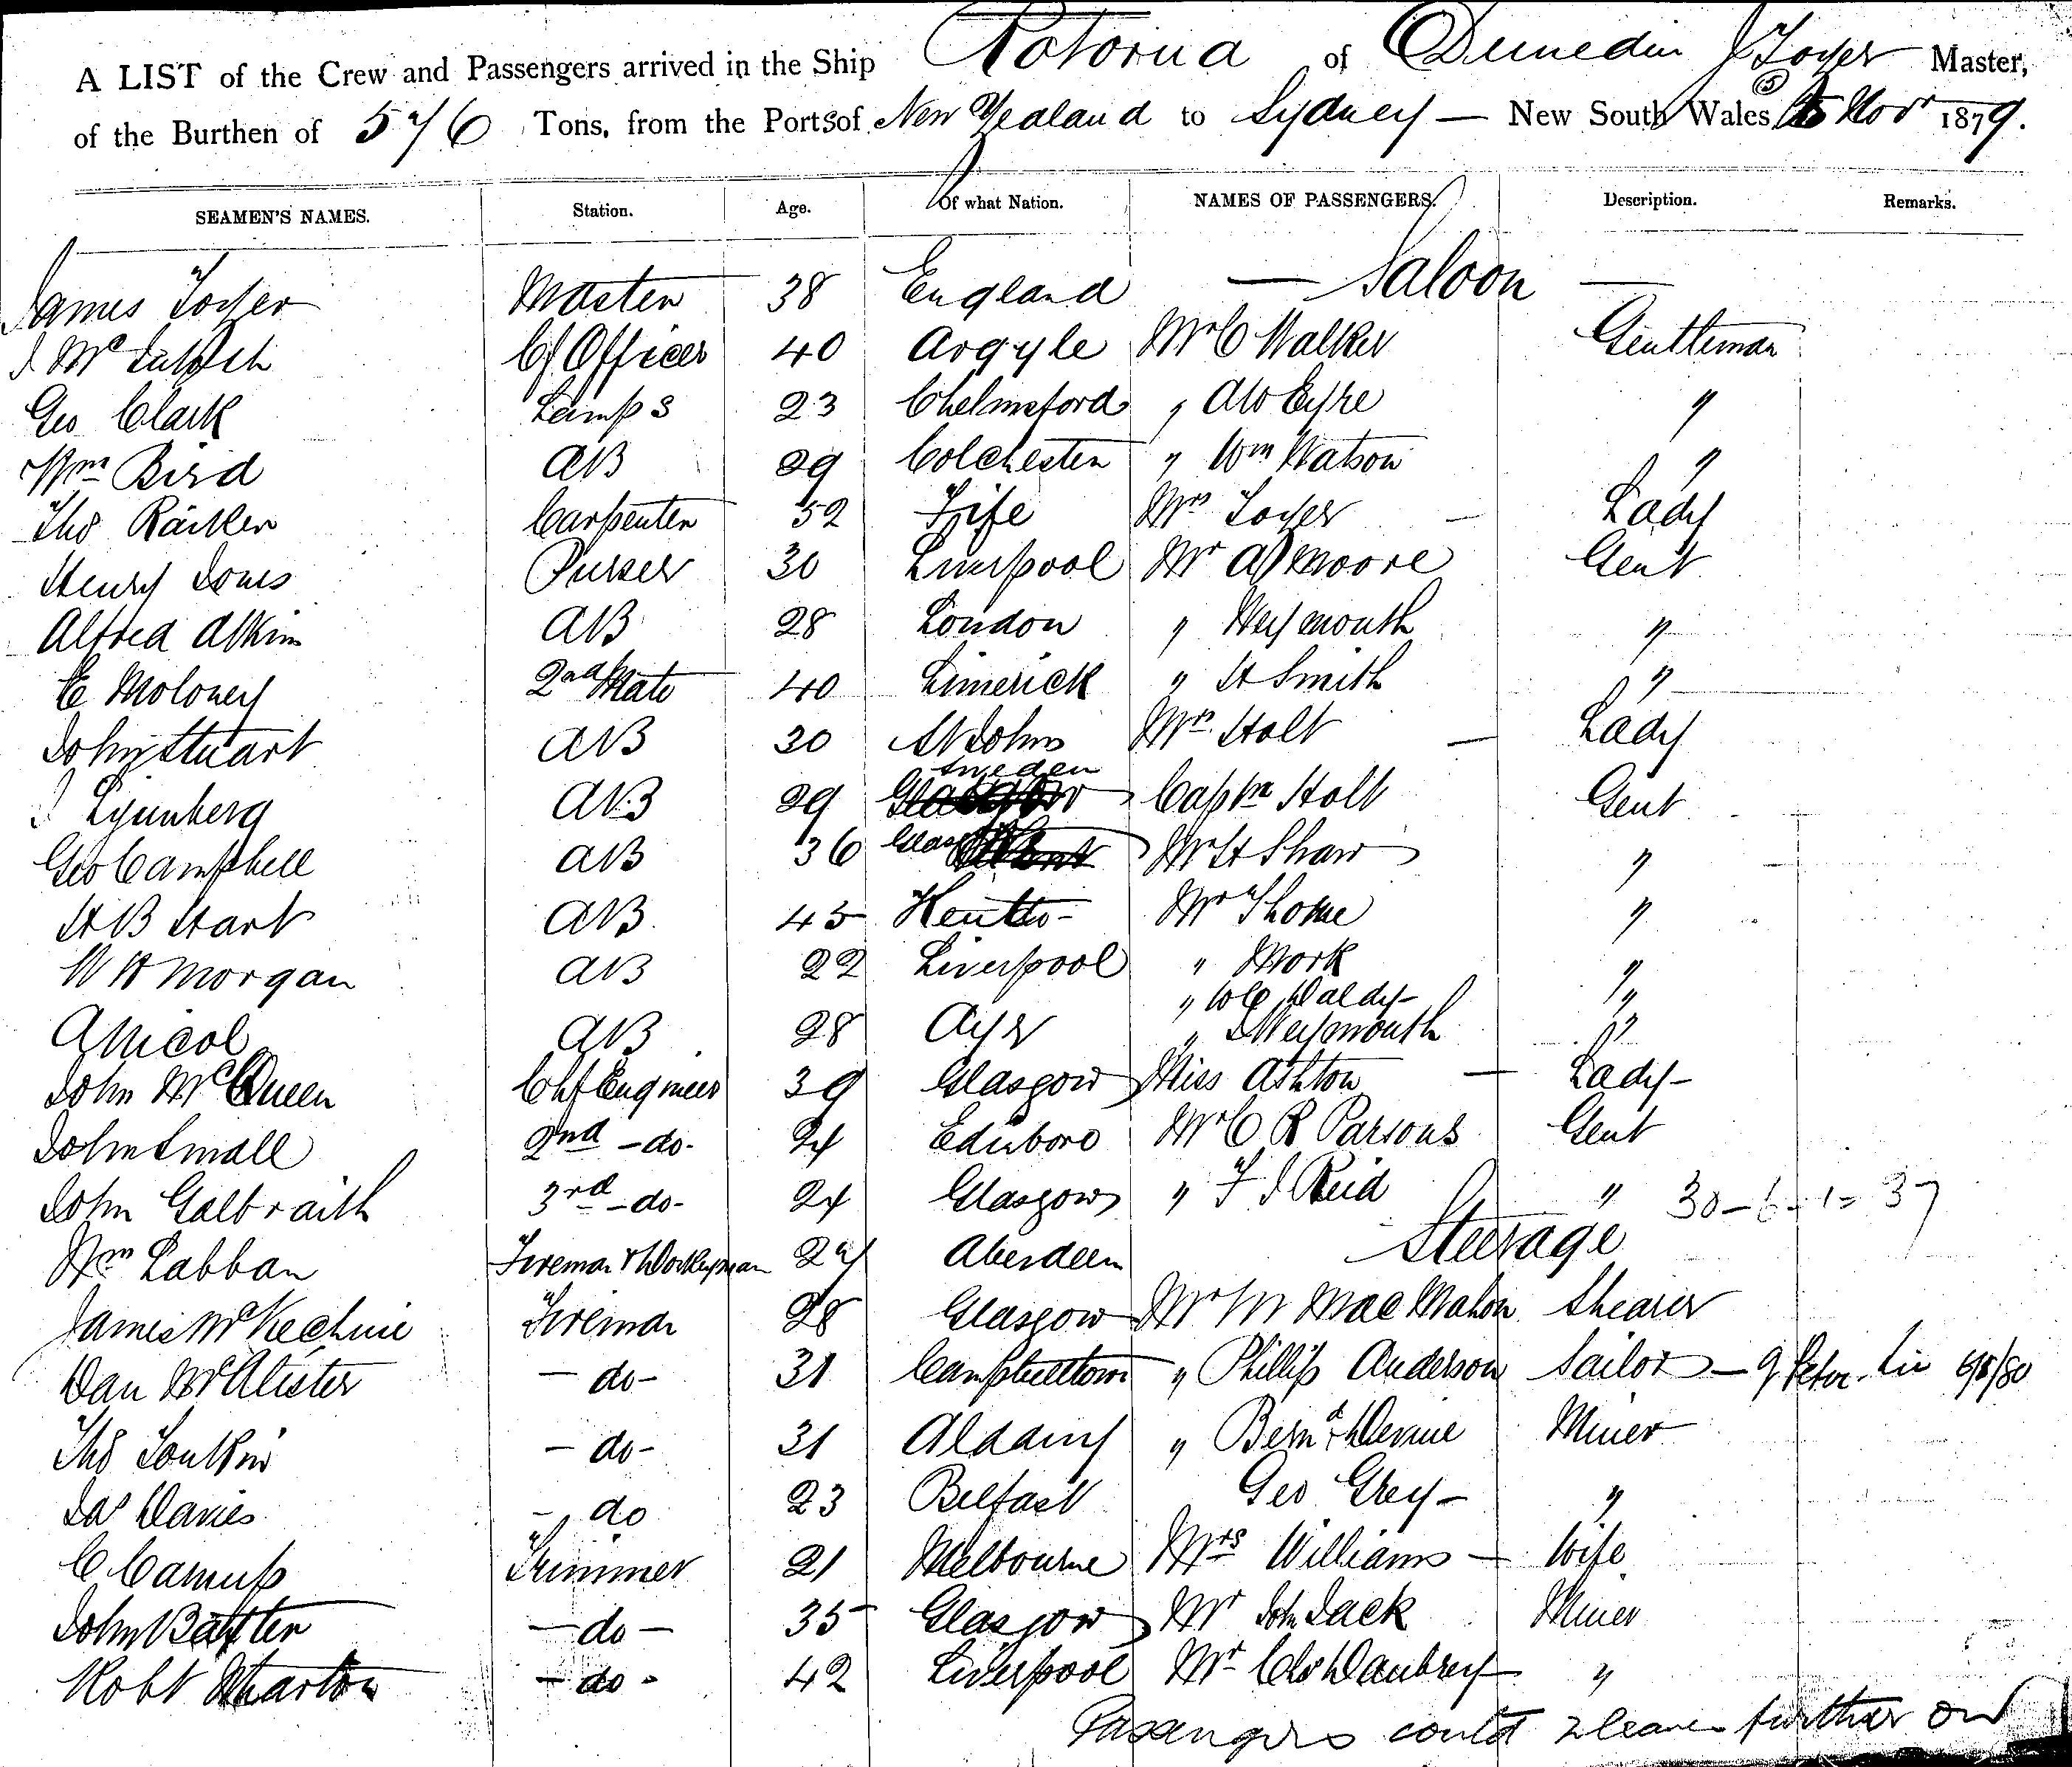 A LIST of the Crew and Passengers arrived in the Ship Rotorua of Dunedin J Toyer Master,
of the Burthen of 576 Tons, from the Ports of New Zealand to Sydney — New South Wales, 5 Novr 1879.
SEAMEN'S NAMES. Station. Age. Of what Nation. NAMES OF PASSENGERS. Description. Remarks.
— Saloon —
James Toyer Master 38 England
J Mc Cf Officer 40 Argyle Mr C Walker Gentleman
Geo Clark Lamps 23 Chelmsford " A W Eyre "
Wm Bird AB 29 Colchester " Wm Watson "
Thos Carpenter 52 Fife Mrs Toyer — Lady
Henry Jones Purser 30 Liverpool Mr A J Moore Gent
Alfred Atkin AB 28 London " Weymouth "
E Moloney 2nd Mate 40 Limerick " H Smith "
John Stuart AB 30 St Johns Mrs Holt — Lady
J Ljunberg AB 29 Sweden Captn Holt Gent
Geo Campbell AB 36 Glas Mr H Shaw "
H B Hart AB 45 Mr Thorne "
W H Morgan AB 22 Liverpool " Mork "
" W C Daldy "
A Nicol AB 28 Ayr " Weymouth "
John McQueen Chf Engineer 39 Glasgow Miss Ashton — Lady
John Small 2nd - do - 24 Edinboro Mr C R Parsons Gent
John Galbraith 3rd - do - 24 Glasgow " F J Reid " 30 - 6 - 1 = 37
Steerage
Wm Labban Fireman & Donkeyman 24 Aberdeen
James McKechnie Fireman 28 Glasgow Mr M MacMahon Shearer
Dan McAlister — do - 31 Campbelltown " Phillip Anderson Sailor —
Thos - do - 31 " Bernd Devine Miner
Jas Davies - do 23 Belfast Geo Grey — "
C Trimmer 21 Melbourne Mrs Williams — Wife
John Baxter — do — 35 Glasgow Mr John Jack Miner
Robt Wharton - do - 42 Liverpool Mr Chs Daubrey "
Passengers contd 2 leaves further on